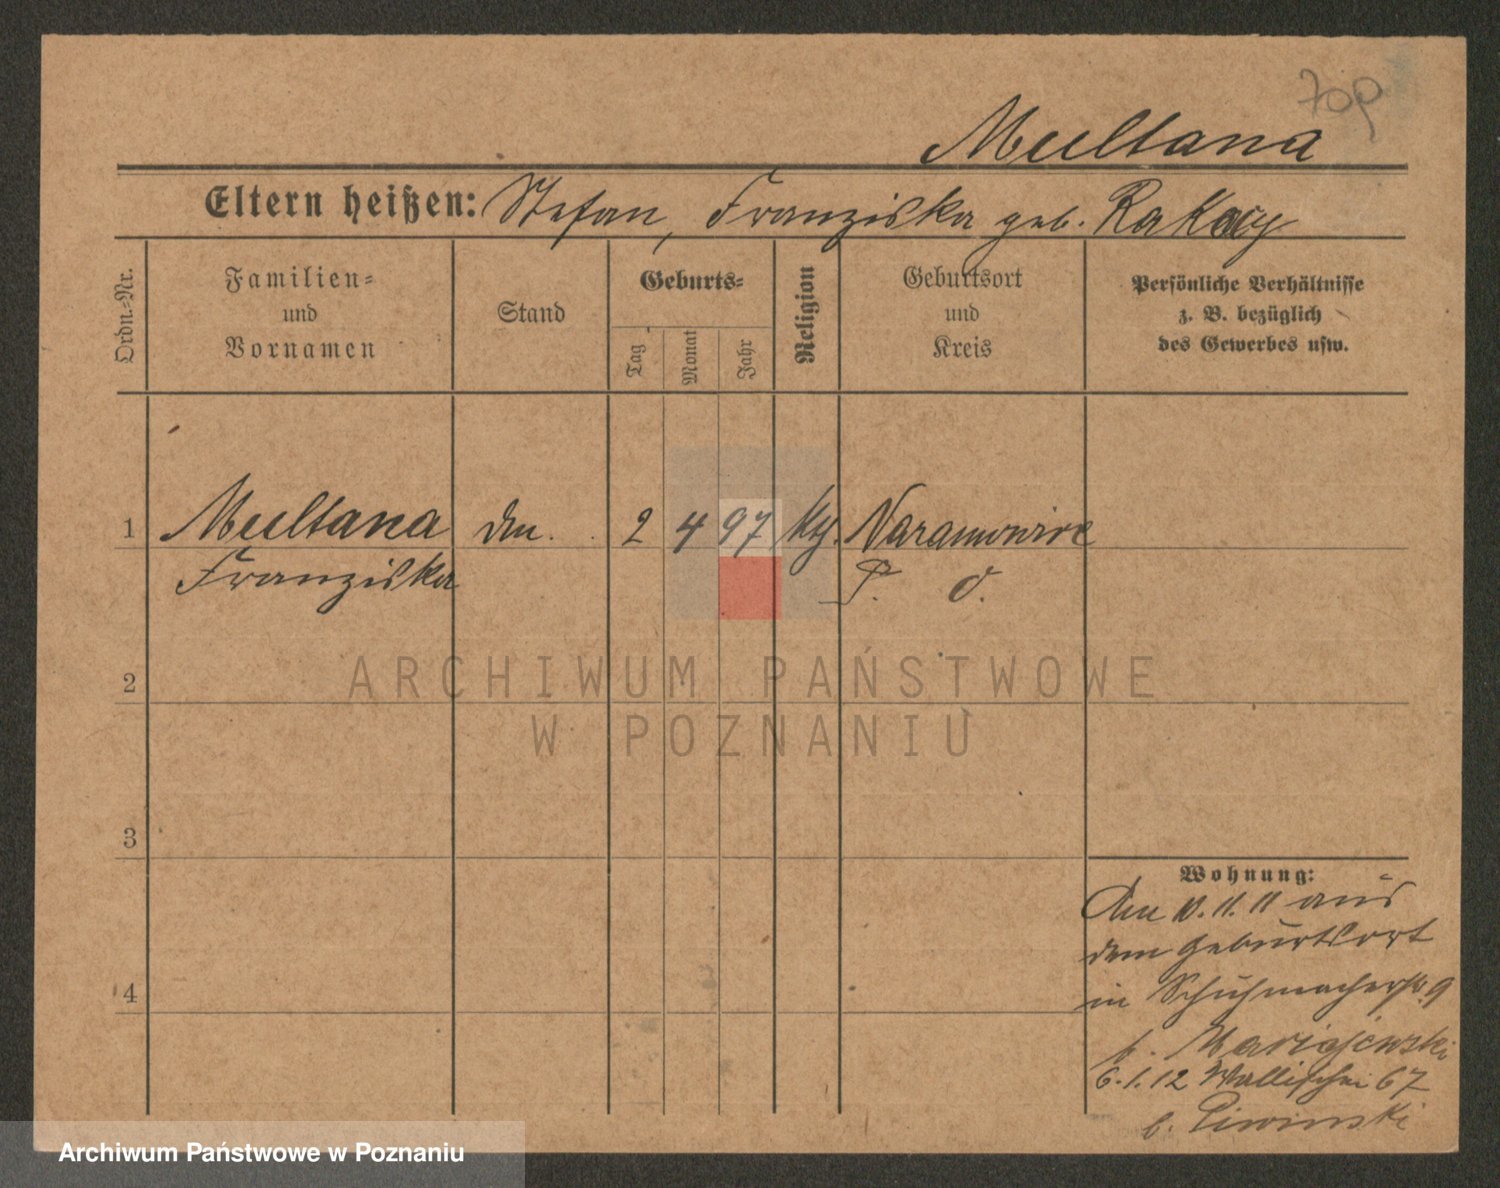 709
Multana
Eltern heißen: Stefan, Franziska geb.
Ordn.-Nr.
Familien-
und
Vornamen
Stand
Geburts-
Tag
Monat
Jahr
Religion
Geburtsort
und
Kreis
Persönliche Verhältnisse
z. B. bezüglich
des Gewerbes usw.
1 Multana 2 4 97 Naramowice
Franziska P. O.
ARCHIWUM PAŃSTWOWE
2
W POZNANIU
3
Wohnung:
Am 10.11.11 aus
dem Geburtsort
4
in Schuhmacherstr. 9
b.
6.1.12 Wallischei 67
b. Piwinski
Archiwum Państwowe w Poznaniu